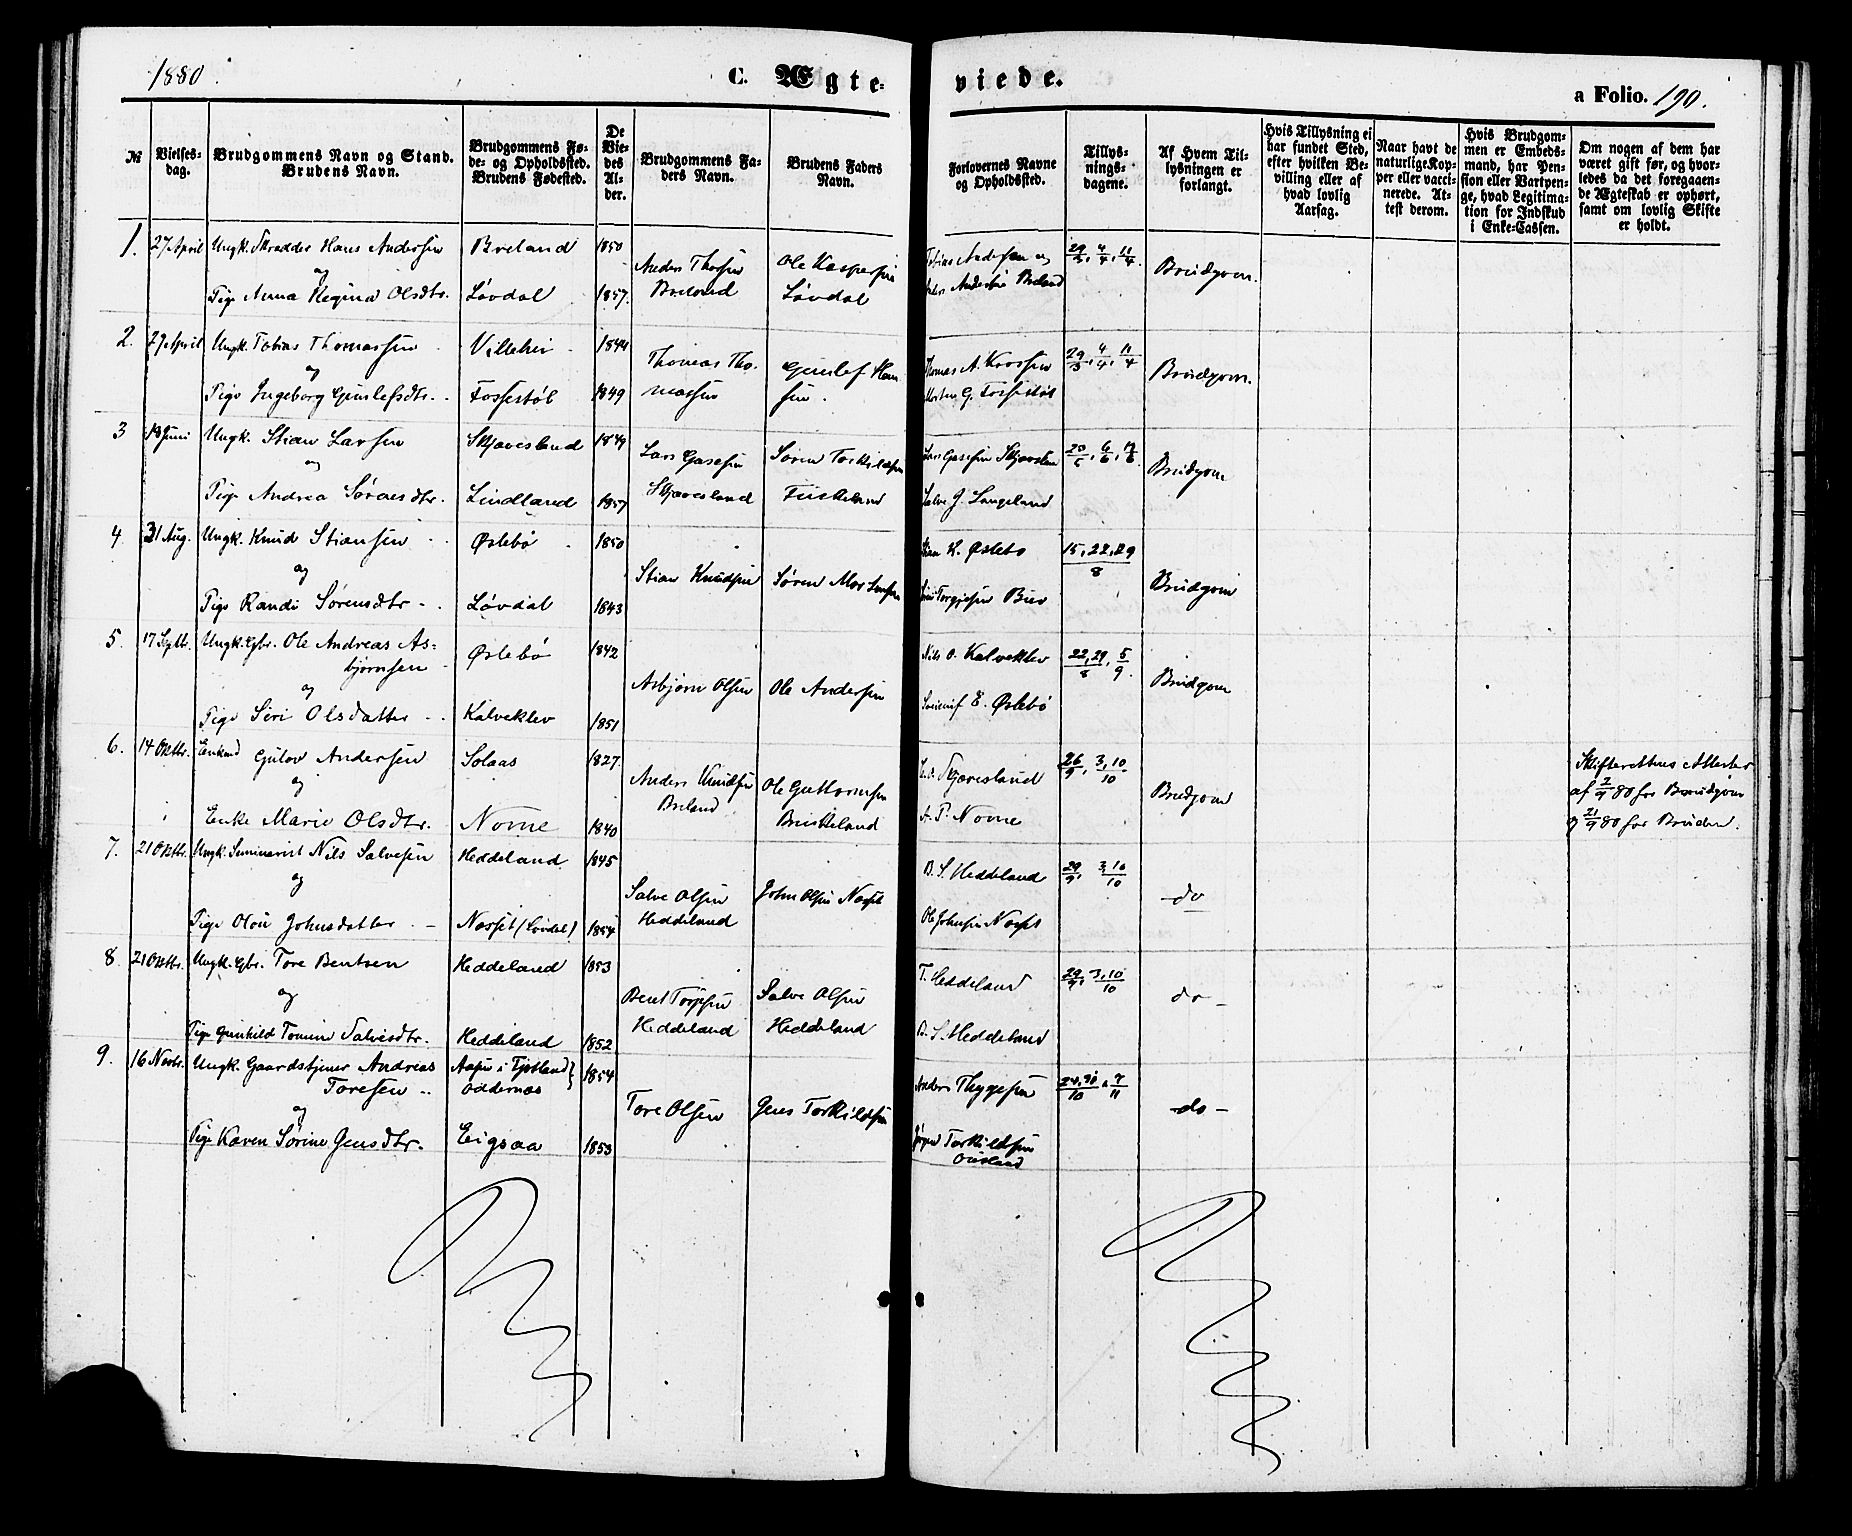 1880.
C. Ægte-
viede.
a Folio. 190.
№
Vielses-
dag.
Brudgommens Navn og Stand.
Brudens Navn.
Brudgommens Fø-
de- og Opholdssted.
Brudens Fødested.
De
Vie-
des
Al-
der.
Brudgommens Fa-
ders Navn.
Brudens Faders
Navn.
Forlovernes Navne
og Opholdssted.
Tillys-
nings-
dagene.
Af Hvem Til-
lysningen er
forlangt.
Hvis Tillysning ei
har fundet Sted,
efter hvilken Be-
villing eller af
hvad lovlig
Aarsag.
Naar havt de
naturlige Kop-
per eller vacci-
nerede. At-
test derom.
Hvis Brudgom-
men er Embeds-
mand, har Pen-
sion eller Vartpen-
ge, hvad Legitima-
tion for Indskud
i Enke-Cassen.
Om nogen af dem har
været gift før, og hvor-
ledes da det foregaaen-
de Ægteskab er ophørt,
samt om lovlig Skifte
er holdt.
1. 27 April Ungk. Skrædder Hans Andersen Breland 1850
og
Pige Anna Regina Olsdtr. Løvdal 1857.
Anders Thorsen
Breland
Ole Kaspersen
Løvdal
Tobias Andersen og
Andersen Breland
29/3, 4/4, 11/4
Brudgom.
2. 27 April Ungk. Tobias Thomassen Villehei 1844
og
Pige Ingeborg Gunlefsdtr. Fossestøl 1849
Thomas Tho-
massen
Gunlef Han-
sen.
Thomas A.
Morten G. Fossestøl
29/3, 4/4, 11/4
Brudgom.
3 Juni Ungk. Stian Larsen Skjævesland 1849
og
Pige Andrea Sørensdtr. Lindland 1857
Lars Gasesen
Skjævesland
Søren Torkildsen
Fiskeland
Lars Gasesen
Salve J. Langeland
6/6
Brudgom
4 31 Aug. Ungk. Knud Stiansen Øslebø 1850
og
Pige Randi Sørensdtr Løvdal 1843
Stian Knudsen
Søren Mortensen
Stian K. Øslebø
15, 22, 29
8
Brudgom
5. 17 Septbr. Ungk. Gbr. Ole Andreas As-
bjørnsen
Øslebø 1842
og
Pige Siri Olsdatter Kalveklev 1851
Asbjørn Olsen
Ole Andersen
Nils O. Kalveklev
E. Øslebø
22, 29/8, 5/9.
Brudgom
6. 14 Oktbr. Enkmd Gulov Andersen Solaas 1827
og
Enke Marie Olsdtr. Nome 1840
Anders Knudsen
Breland
Ole Guttormsen
Brinkeland
Skjævesland
A. P. Nome
26/9, 3, 10/10
Brudgom
Skifterettens Attester
af 2/9 80 for Brudgom
og 21/9 80 for Bruden.
7. 21 Oktbr. Ungk. Seminarist Nils Salvesen Heddeland 1845
og
Pige Olou Johnsdatter Nosset (Løvdal) 1854
Salve Olsen
Heddeland
John Olsen Nosset
B. S. Heddeland
Ole Johnsen Nosset
29/9, 3, 10/10
do
8. 21 Oktbr. Ungk. Gbr. Tore Bentsen Heddeland 1853
og
Pige Gunhild Tomine Salvesdtr. Heddeland 1852
Bent
Heddeland
Salve Olsen
Heddeland
T. Heddeland
B. S. Heddeland
29/9, 3, 10/10
do -
9. 16 Novbr. Ungk. Gaardstjener Andreas
Toresen
i
Oddernæs
1854
og
Pige Karen Sørine Jensdtr. Eigsaa 1853
Tore Olsen
Jens Torkildsen
Anders Thygesen
Jørgen Torkildsen
-do-